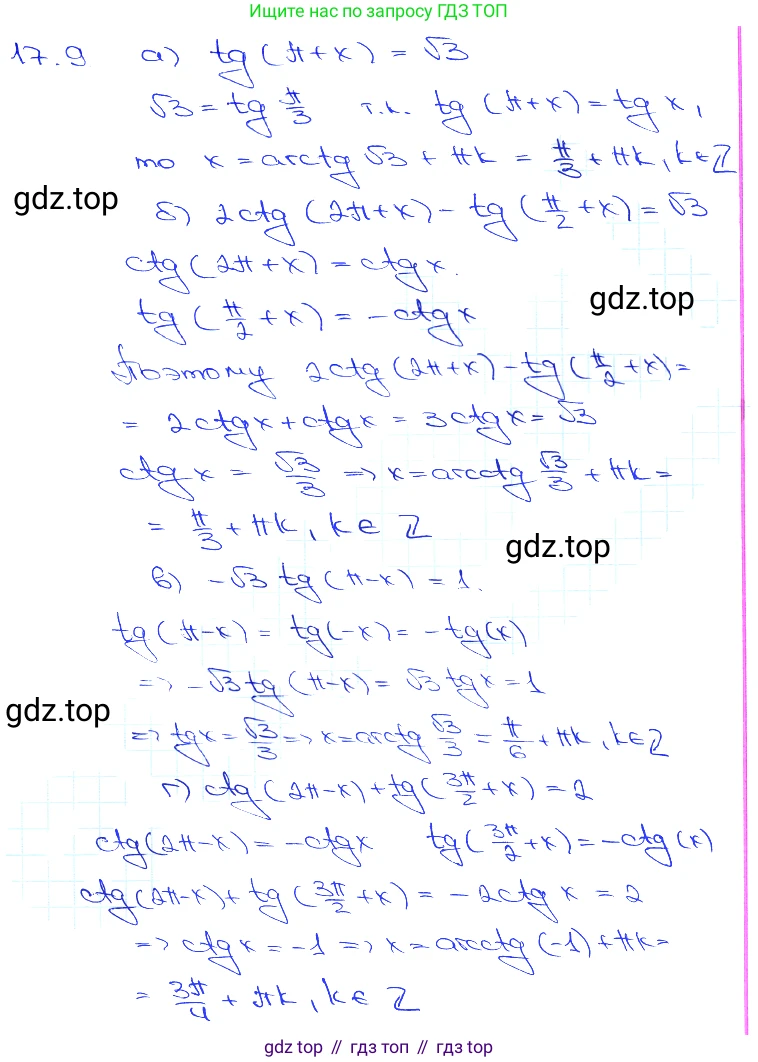 Ищите нас по запросу ГДЗ ТОП
17.9 а) tg(π+x) = √3
√3 = tg π/3 т.к. tg(π+x) = tg x,
то x = arctg √3 + πk = π/3 + πk, k∈Z
gdz.top
б) 2ctg(2π+x) - tg(π/2+x) = √3
ctg(2π+x) = ctg x.
gdz.top
tg(π/2+x) = -ctg x
Поэтому 2ctg(2π+x) - tg(π/2+x) =
= 2ctgx + ctgx = 3ctgx = √3
ctg x = √3/3 => x = arcctg √3/3 + πk =
= π/3 + πk, k∈Z
gdz.top
в) -√3 tg(π-x) = 1.
tg(π-x) = tg(-x) = -tg(x)
=> -√3 tg(π-x) = √3 tgx = 1
gdz.top
=> tgx = √3/3 => x = arctg √3/3 = π/6 + πk, k∈Z
г) ctg(2π-x) + tg(3π/2+x) = 2
ctg(2π-x) = -ctgx tg(3π/2+x) = -ctg(x)
ctg(2π-x) + tg(3π/2+x) = -2ctg x = 2
=> ctg x = -1 => x = arcctg(-1) + πk =
= 3π/4 + πk, k∈Z
gdz top // гдз топ // гдз top